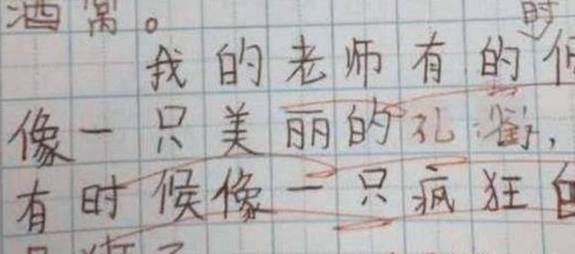 酒窝。
我的老师有的时
像一只美丽的孔雀,
有时候像一只疯狂